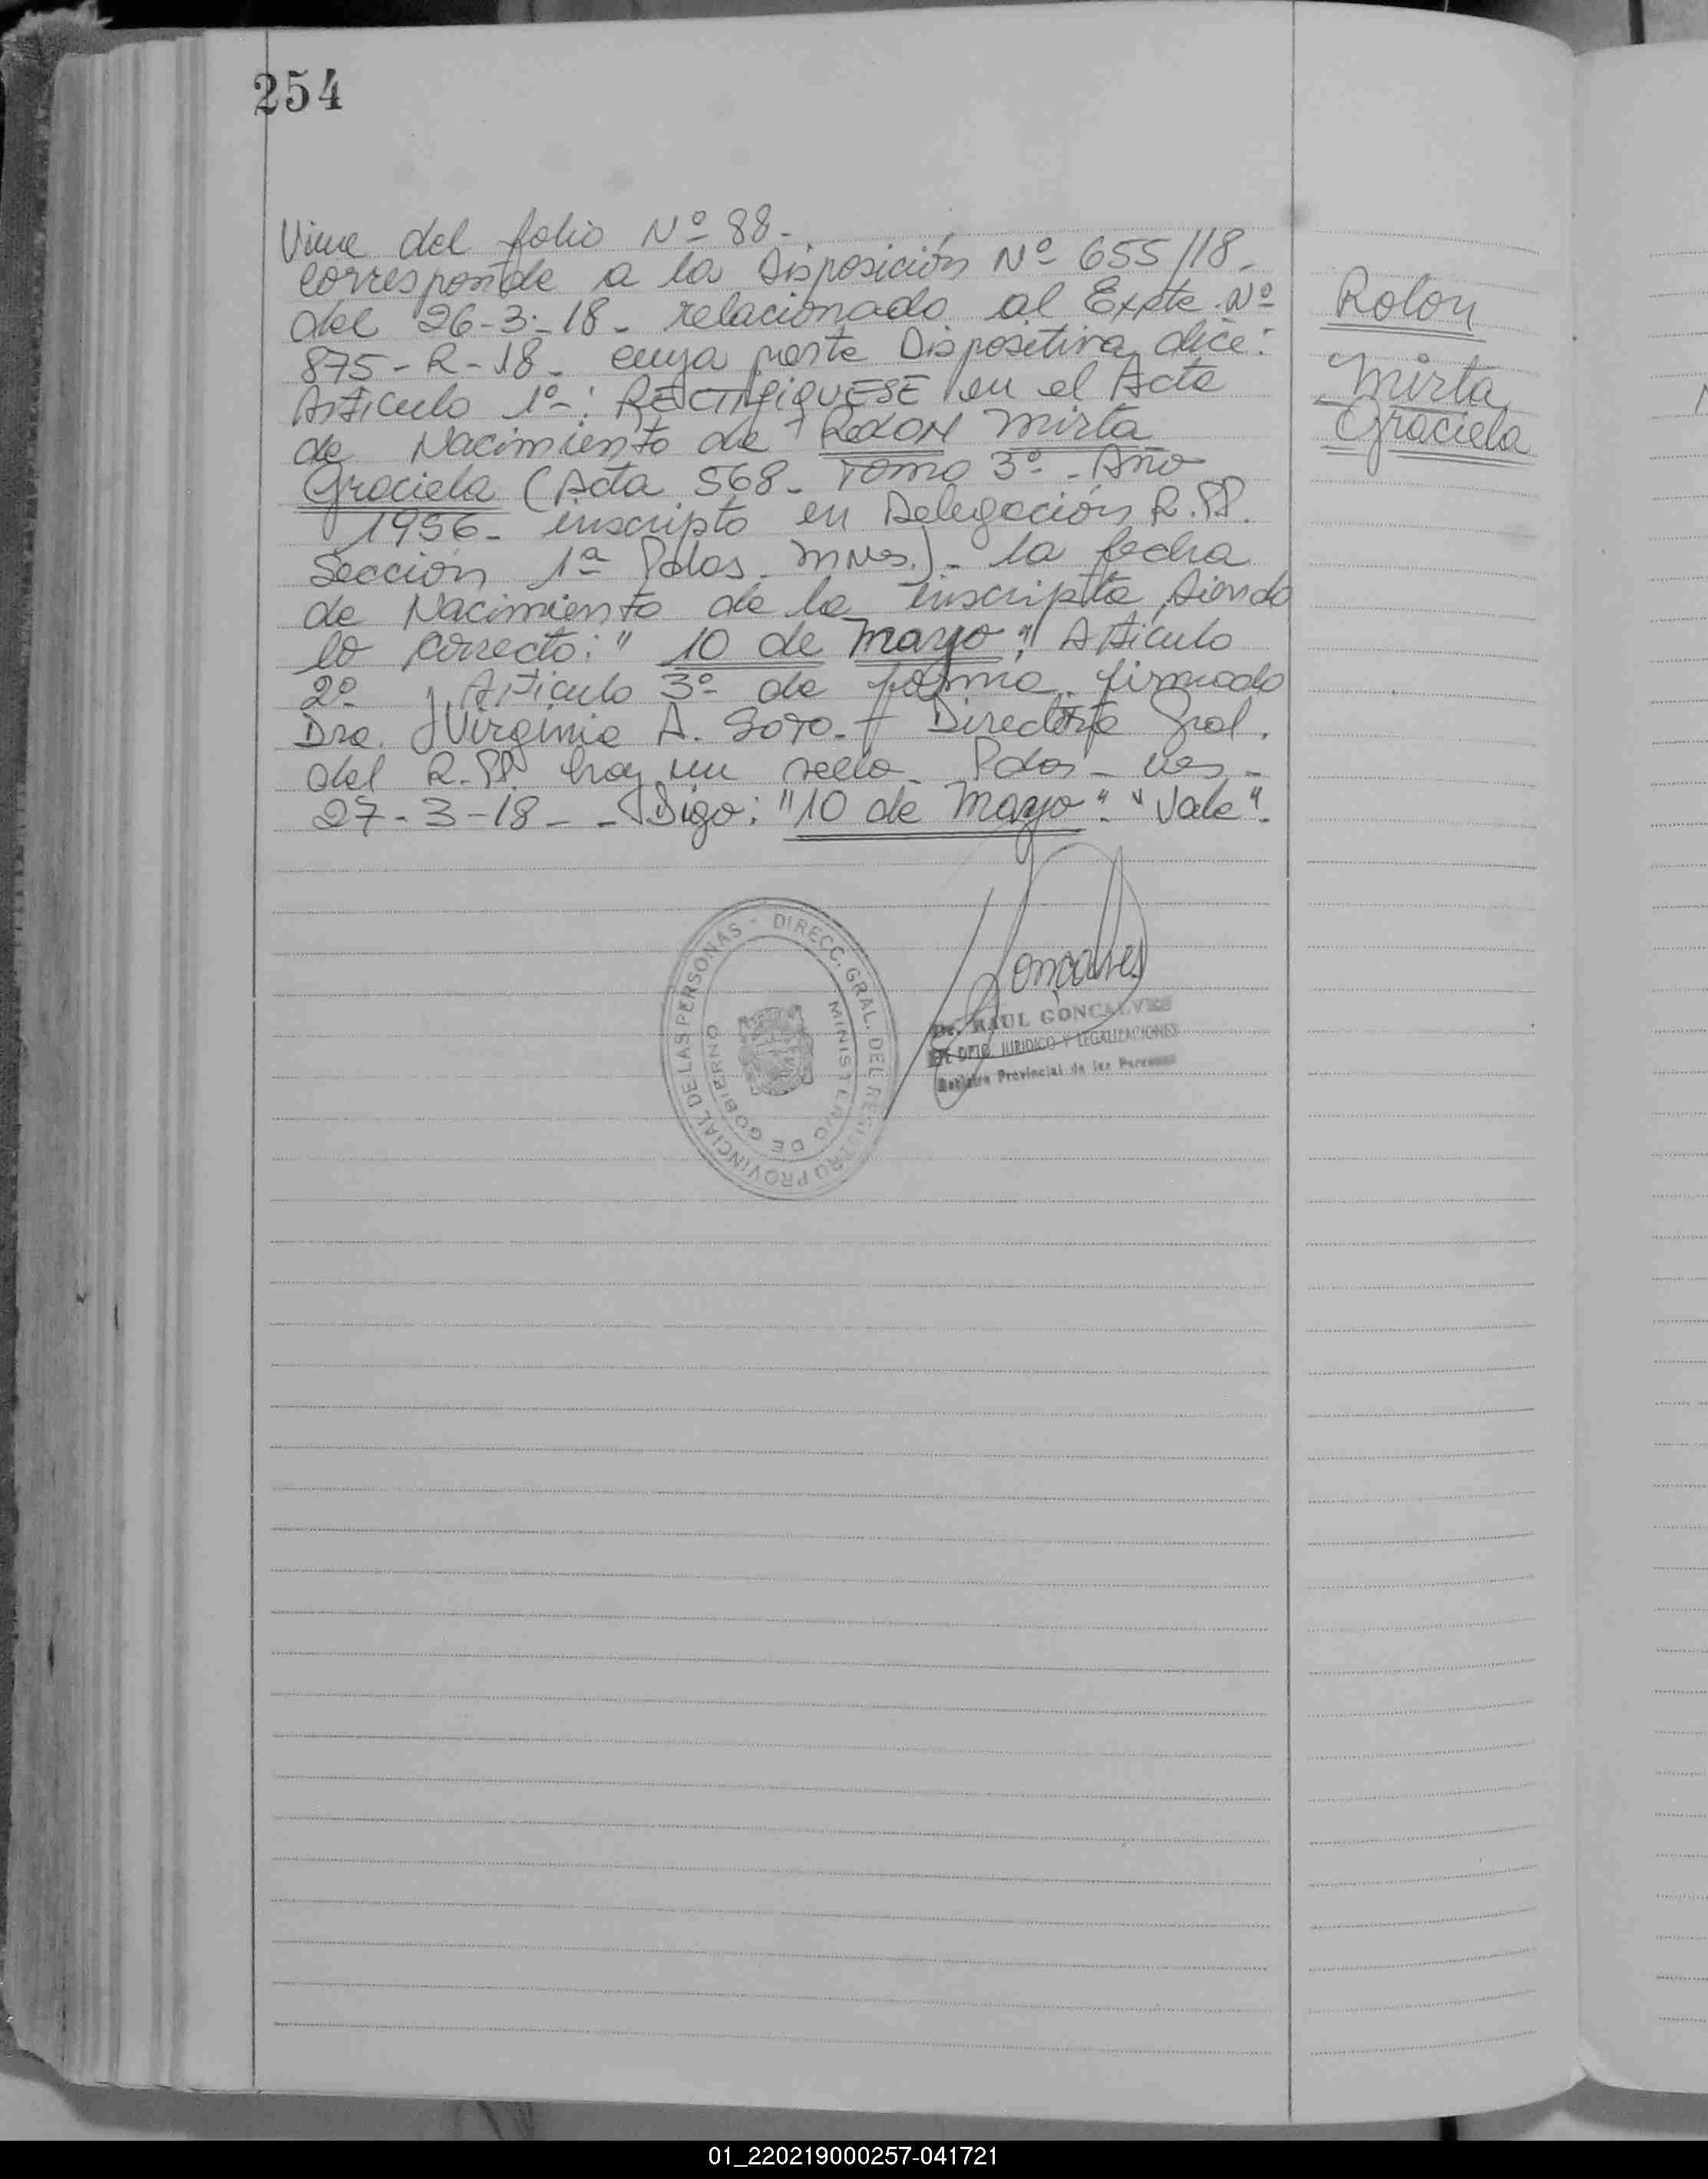 254
Viene del folio Nº 88.-
corresponde a la Disposición Nº 655/18.
del 26-3-18. relacionado al Expte. Nº
875-R-18. cuya parte Dispositiva dice:
Articulo 1º-: RECTIFIQUESE en el Acta
de Nacimiento de ROLON Mirta
Graciela (Acta 568. Tomo 3º. Año
1956. inscripto en Delegación R.PP.
Sección 1ª Pdas. Mnes.). la fecha
de Nacimiento de la inscripta, siendo
lo correcto: "10 de mayo". Articulo
2º y Articulo 3º de forma. firmado
Dra. Virginia A. Soto. Directora Gral.
del R.PP. hay un sello. Pdas.
27-3-18 - - Digo: "10 de Mayo". "Vale".
Rolon
Mirta
Graciela
Goncalves
Dr. RAUL GONCALVES
DPTO. JURIDICO Y LEGALIZACIONES
Registro Provincial de las Personas
DIRECC. GRAL. DEL REGISTRO PROVINCIAL DE LAS PERSONAS -
MINISTERIO DE GOBIERNO
01_220219000257-041721